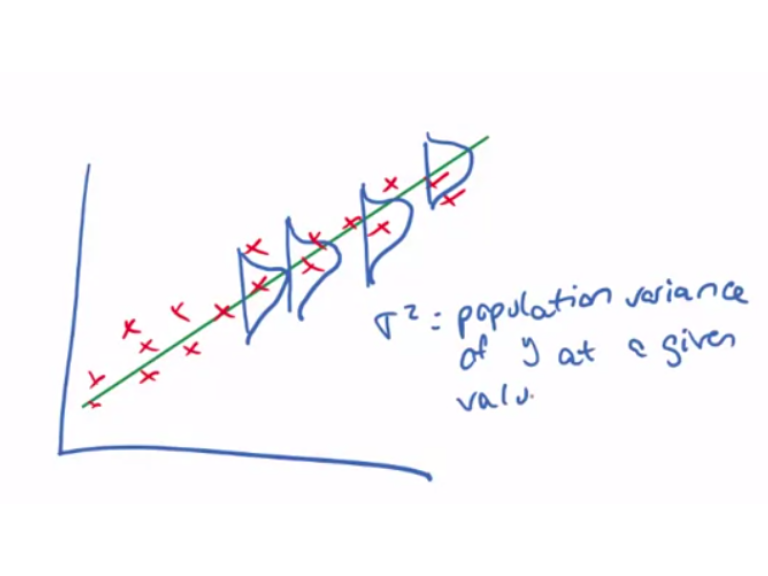 σ² = population variance
of y at a given
valu